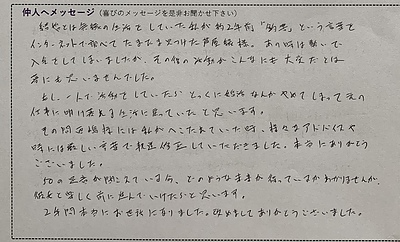 仲人へメッセージ（喜びのメッセージを是非お聞かせ下さい）
結婚とは無縁の生活でしていた私が約2年前「婚活」という言葉で
インターネットで調べてたまたま見つけた芦屋結、あの時は勢いで
入会してしまいましたが、その後の活動がこんなにも大変だとは
夢にも思いませんでした。
もし、1人で活動していたらとっくに婚活なんかやめてしまって又の
仕事に明け暮れる生活に戻っていたと思います。
その間 様には私がへこたれていた時、様々なアドバイスや
時には厳しい言葉で軌道修正していただきました。本当にありがとう
ございました。
50の足音が聞こえている今、どのような未来が待っているかわかりませんが、
彼女と楽しく前に進んでいけたらと思います。
2年間本当にお世話になりました。改めましてありがとうございました。